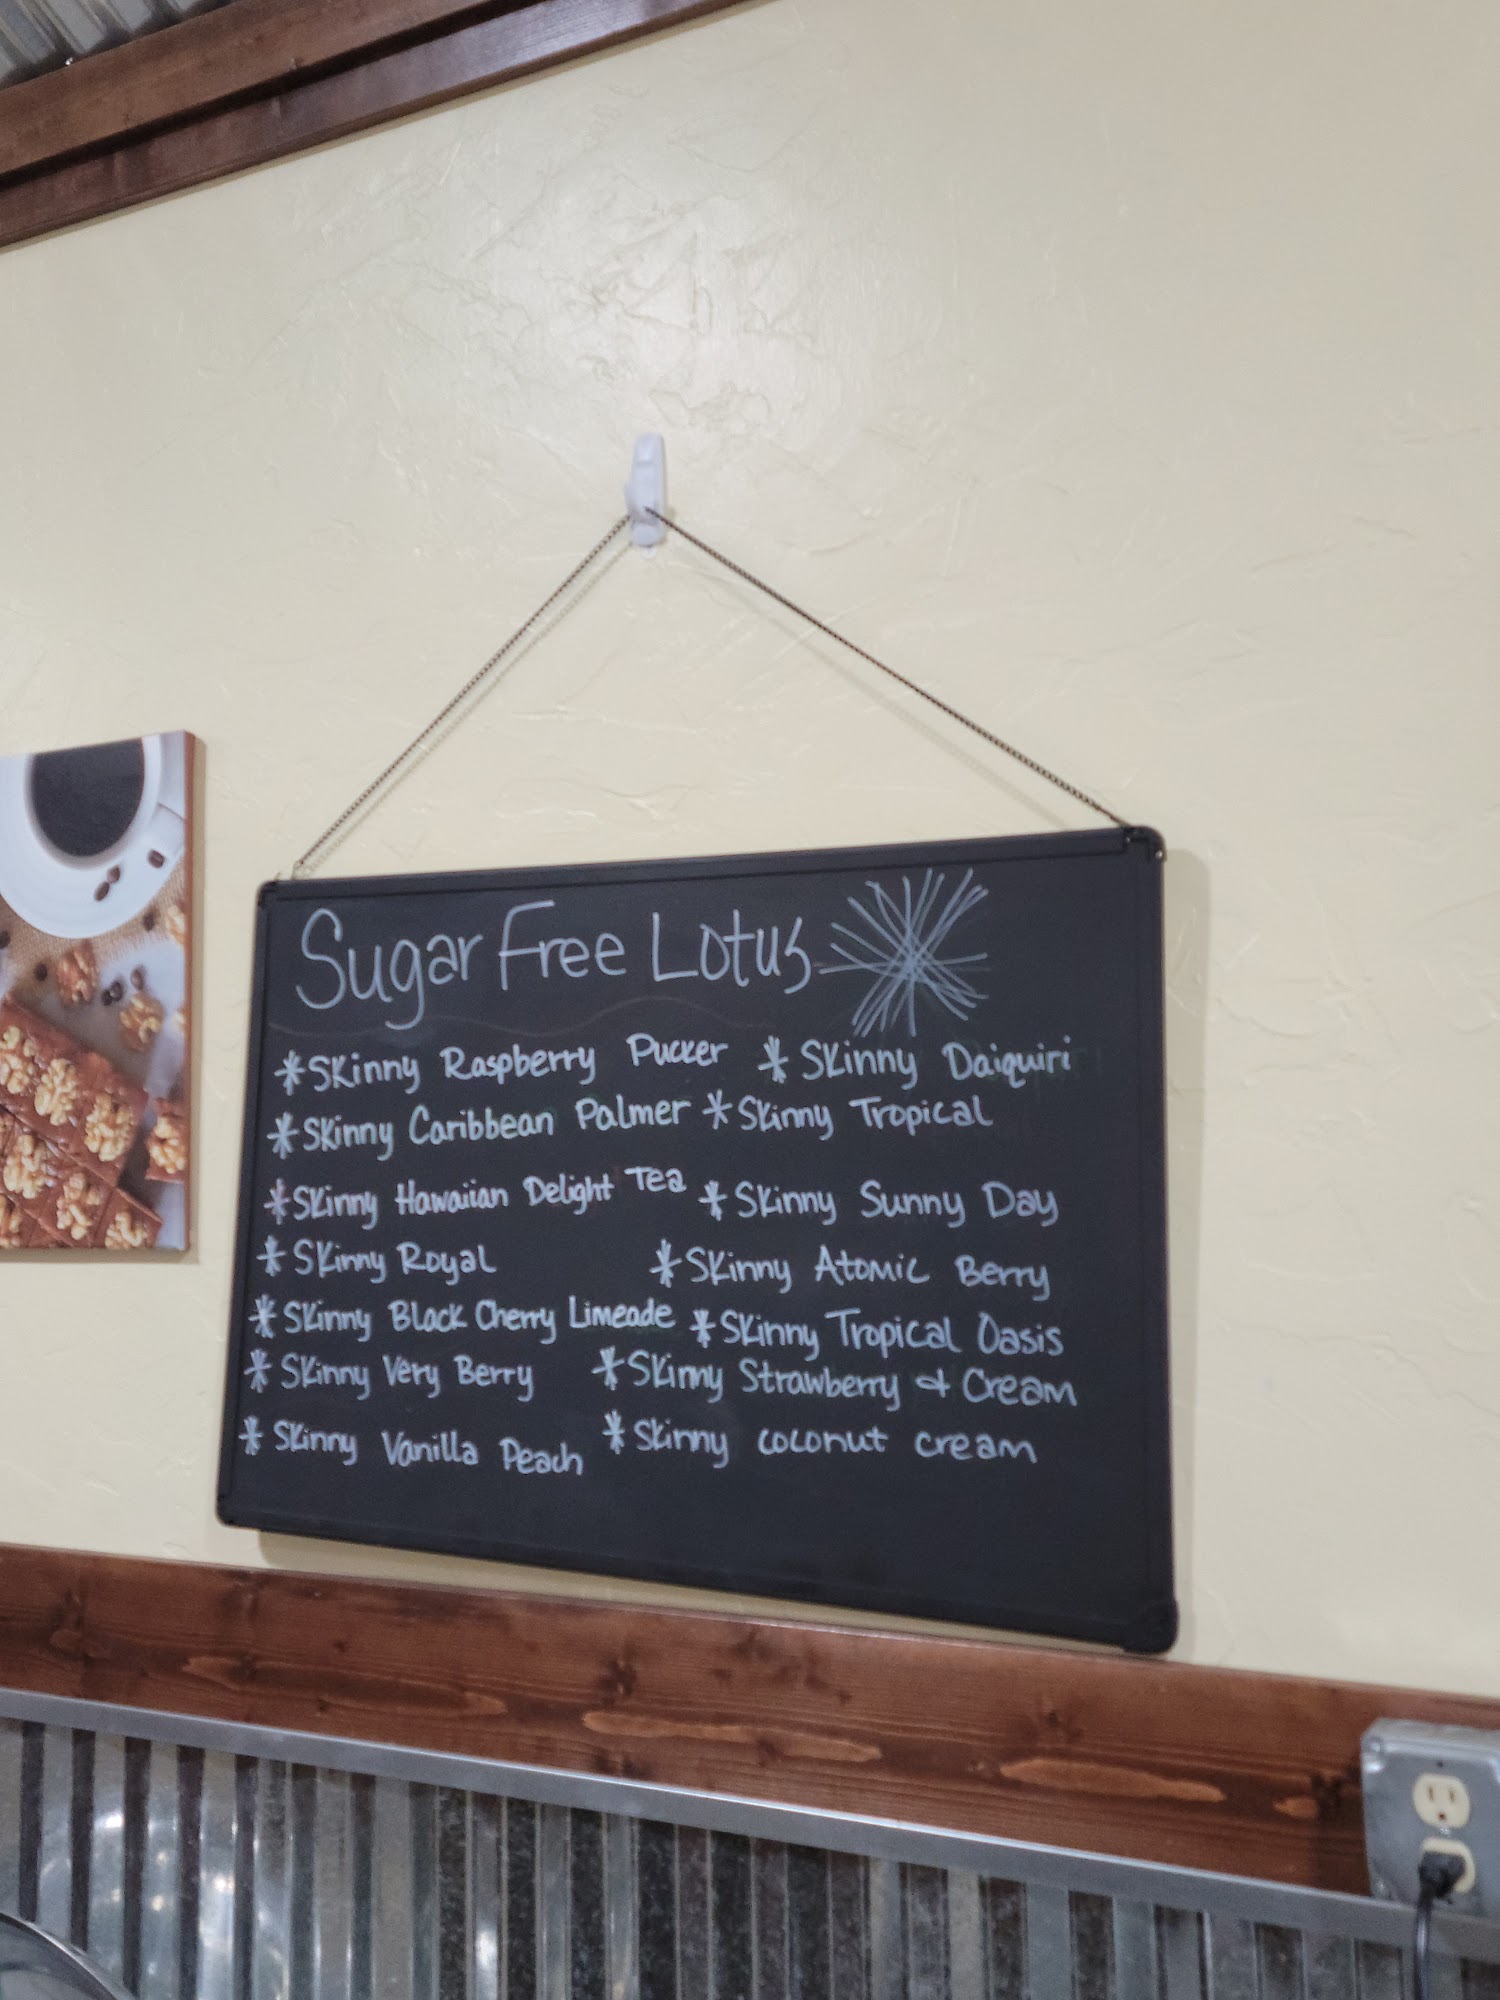 Sugar Free Lotus
*Skinny Raspberry Pucker *Skinny Daiquiri
*Skinny Caribbean Palmer *Skinny Tropical
*Skinny Hawaiian Delight Tea *Skinny Sunny Day
*Skinny Royal *Skinny Atomic Berry
*Skinny Black Cherry Limeade *Skinny Tropical Oasis
*Skinny Very Berry *Skinny Strawberry & Cream
*Skinny Vanilla Peach *Skinny coconut cream